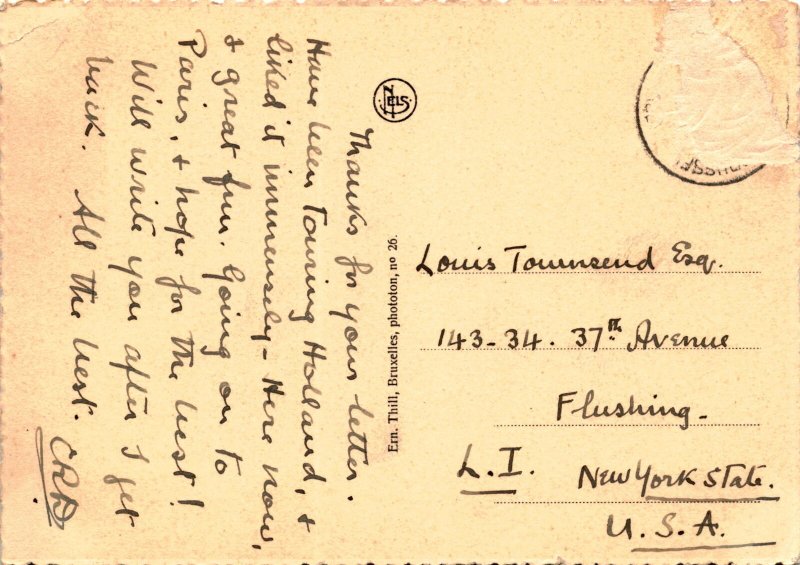 Thanks for your letter.
Have been Touring Holland, &
liked it immensely - Here now,
& great fun. Going on to
Paris, & hope for the best!
Will write you after I get
back. All the best.
NELS
Ern. Thill, Bruxelles, phototon, nº 26.
Louis Townsend Esq.
143-34. 37th Avenue
Flushing-
L.I. New York State.
U.S.A.